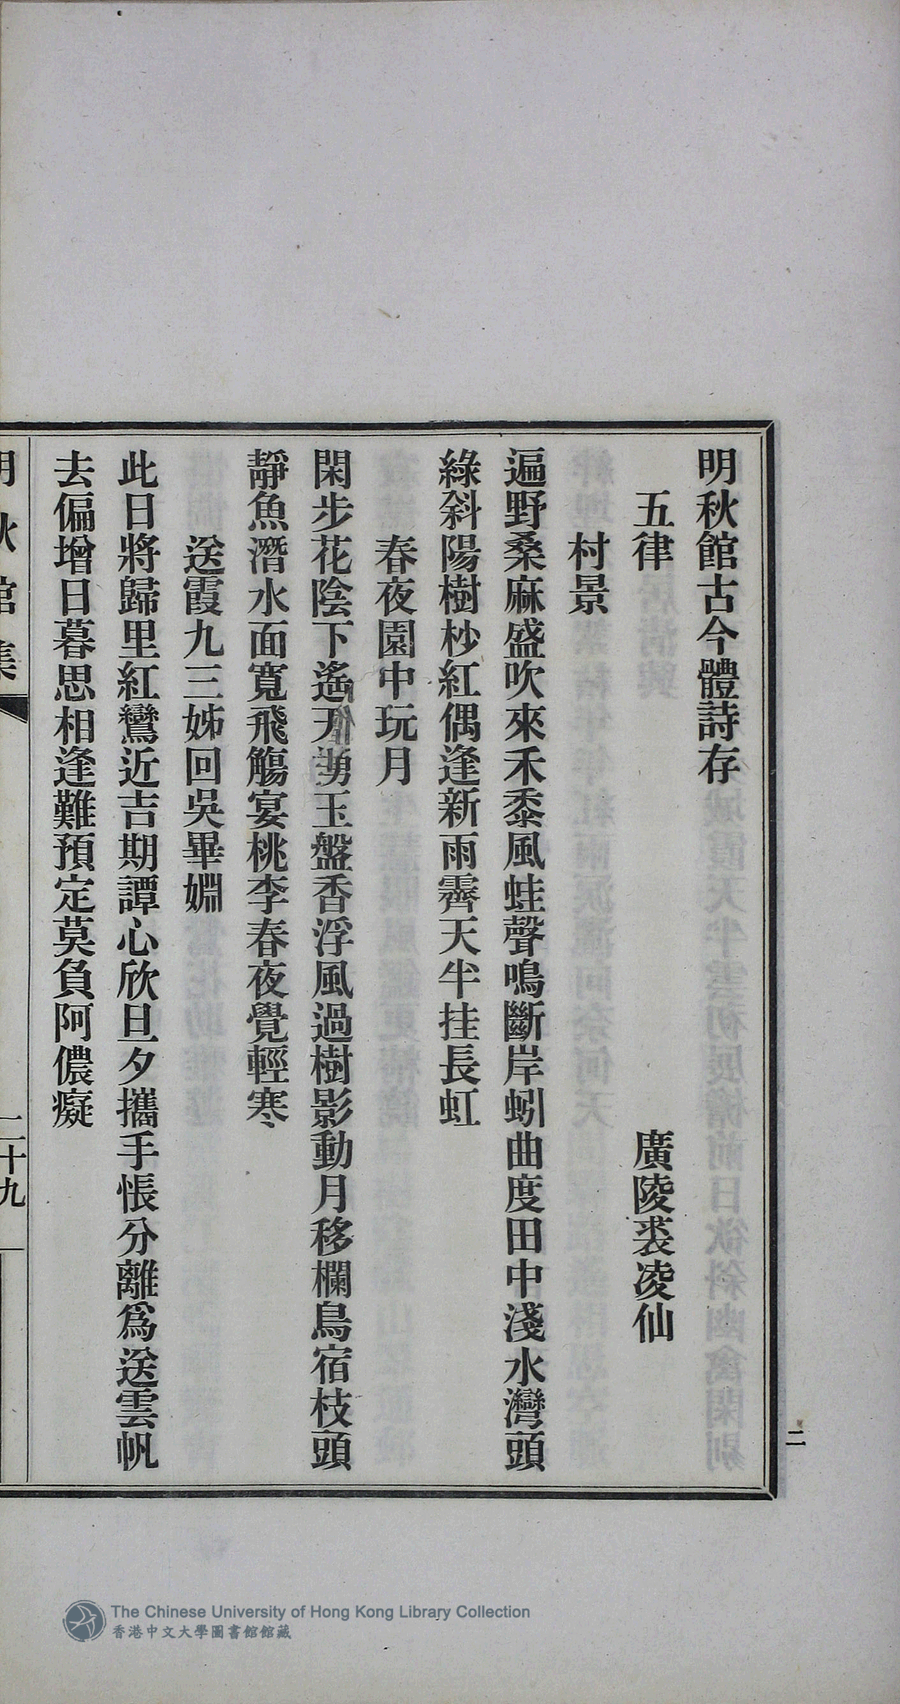 明秋館古今體詩存
五律 廣陵裘凌仙
村景
遍野桑麻盛吹來禾黍風蛙聲鳴斷岸蚓曲度田中淺水灣頭
綠斜陽樹杪紅偶逢新雨霽天半挂長虹
春夜園中玩月
閑步花陰下遙天湧玉盤香浮風過樹影動月移欄鳥宿枝頭
靜魚潛水面寬飛觴宴桃李春夜覺輕寒
送霞九三姊回吳畢婣
此日將歸里紅鸞近吉期譚心欣旦夕攜手悵分離爲送雲帆
去偏增日暮思相逢難預定莫負阿儂癡
明秋館集
二十九
二
The Chinese University of Hong Kong Library Collection
香港中文大學圖書館館藏